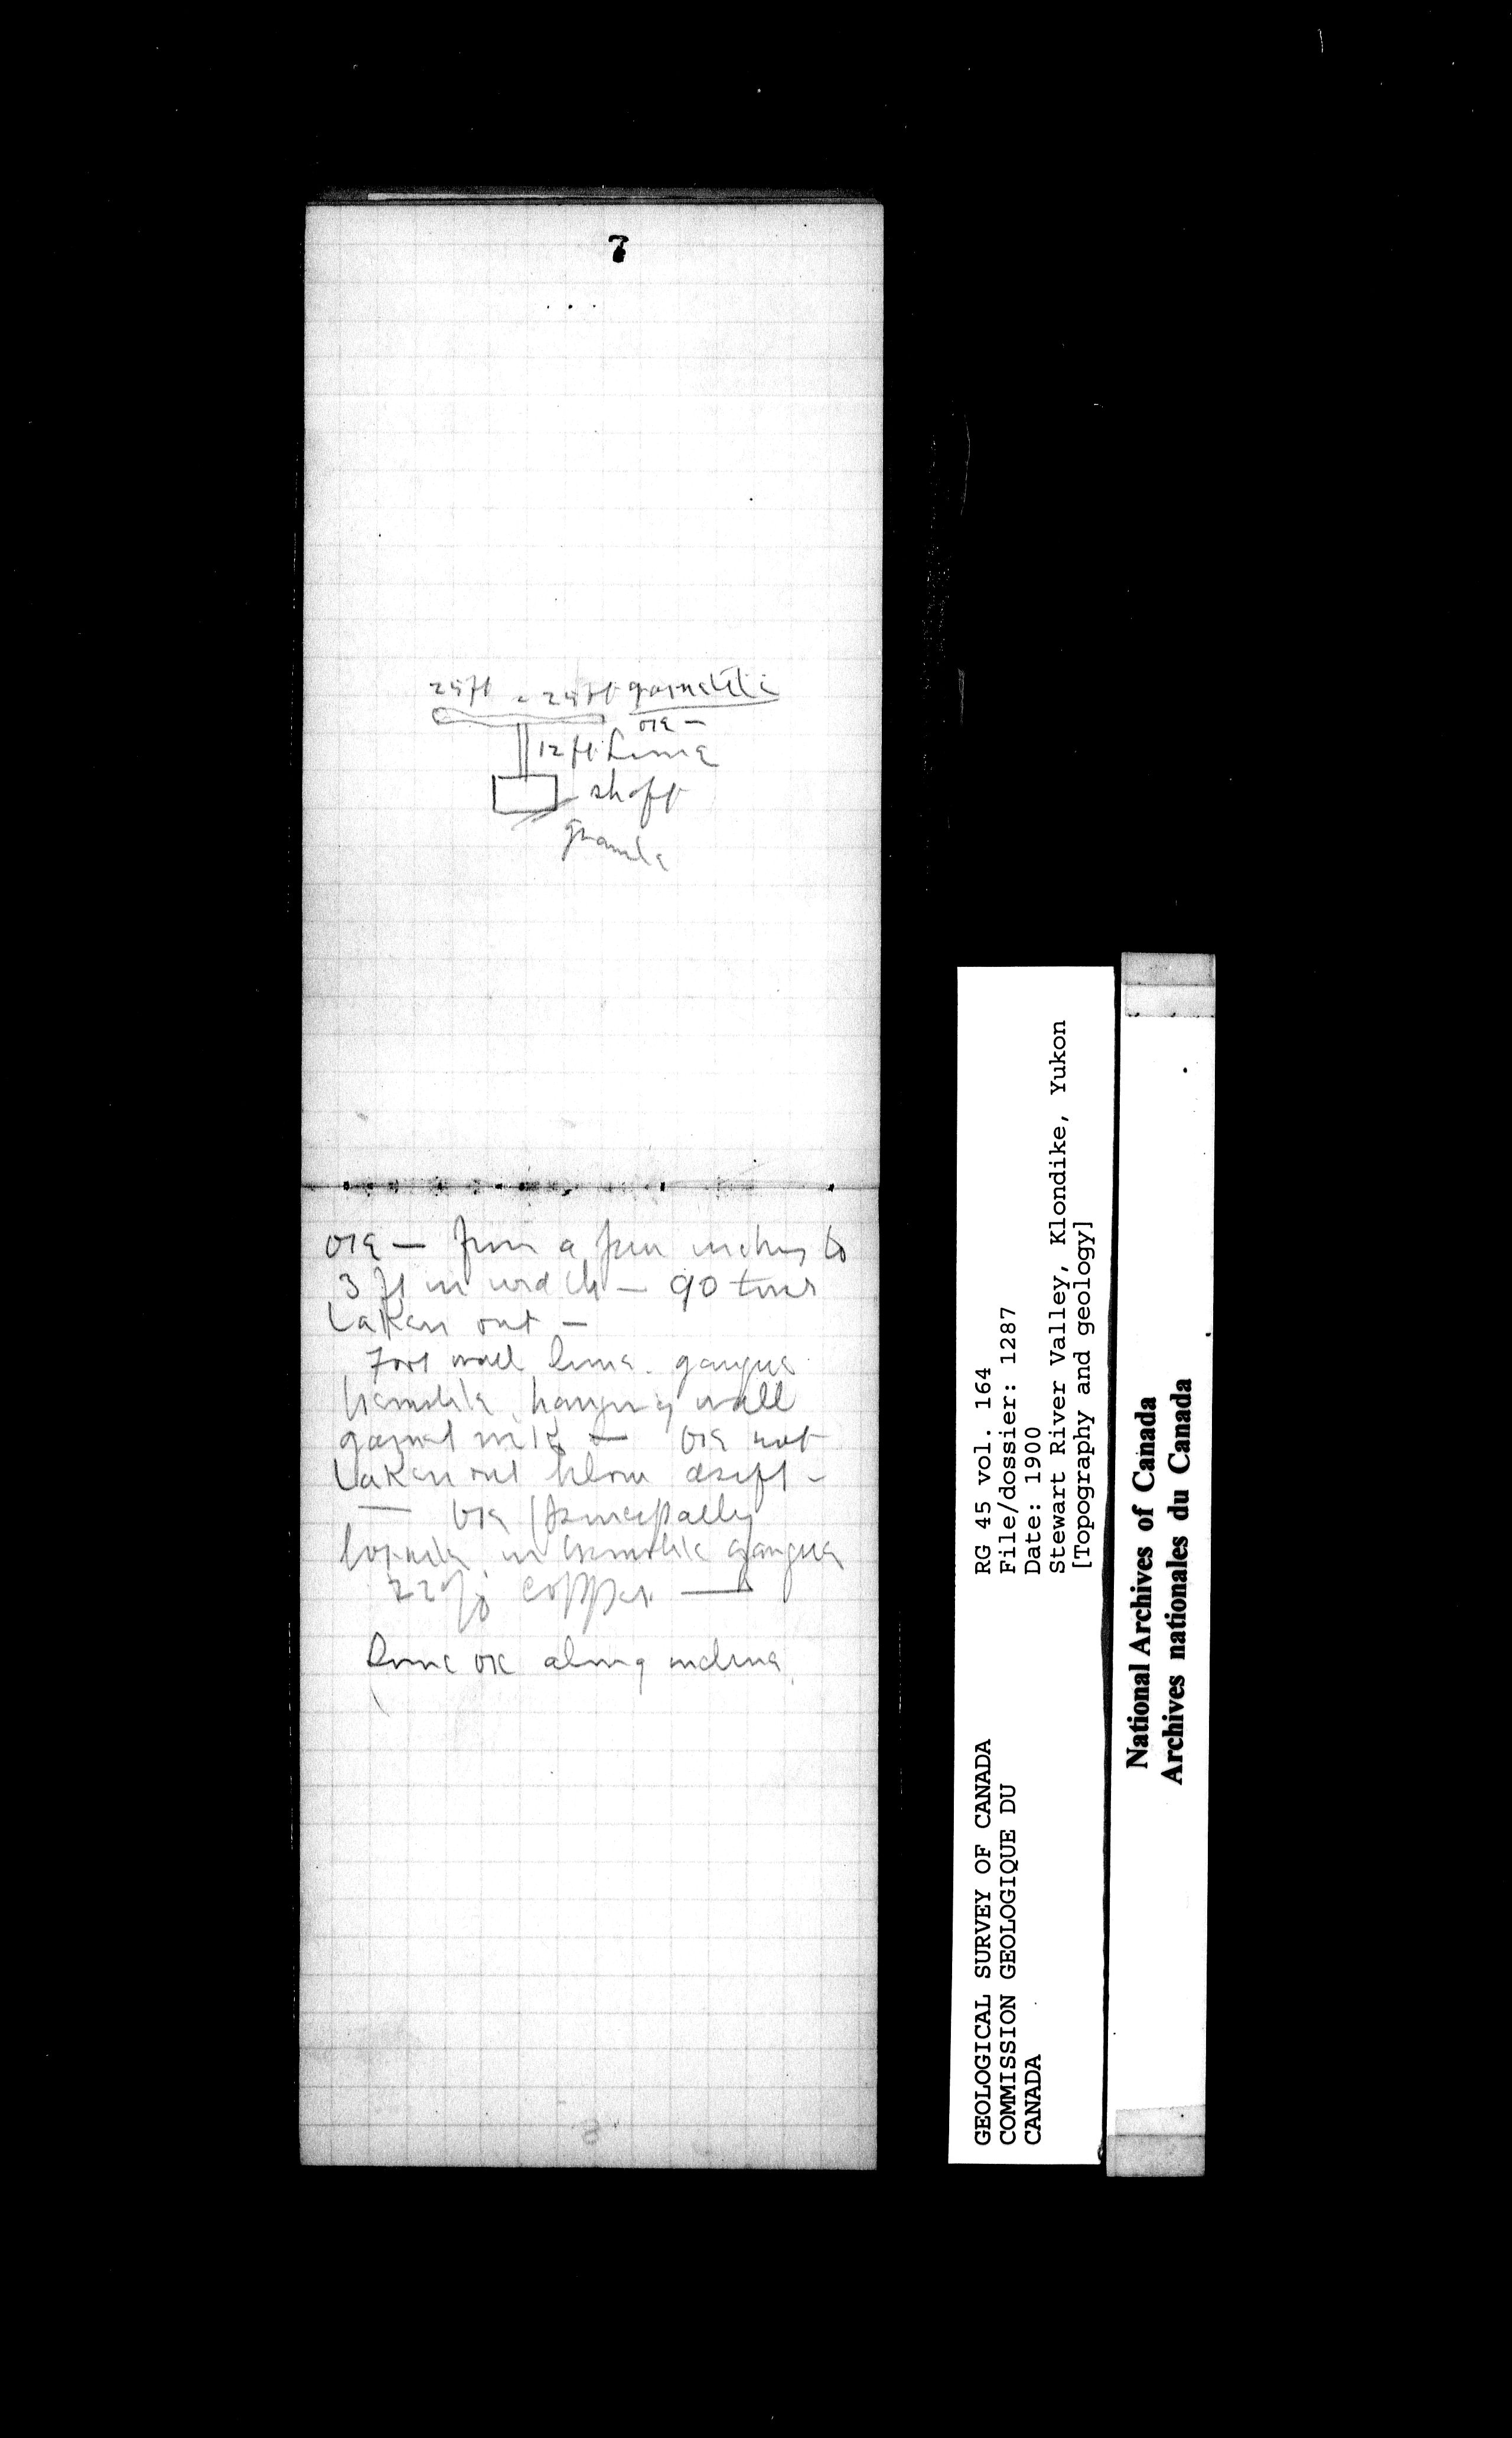 7
25ft - 25ft garnetite
ore -
12 ft. Lime
shaft
granite
ore — from a few inches to
3 ft in width — 90 tons
taken out —
Foot wall lime. gangue
tremolite, hanging wall
garnet — ore not
taken out below drift -
— ore principally
bornite in tremolite gangue
22% copper —
ore along incline
8
RG 45 vol. 164
File/dossier: 1287
Date: 1900
Stewart River Valley, Klondike, Yukon
[Topography and geology]
GEOLOGICAL SURVEY OF CANADA
COMMISSION GEOLOGIQUE DU
CANADA
National Archives of Canada
Archives nationales du Canada